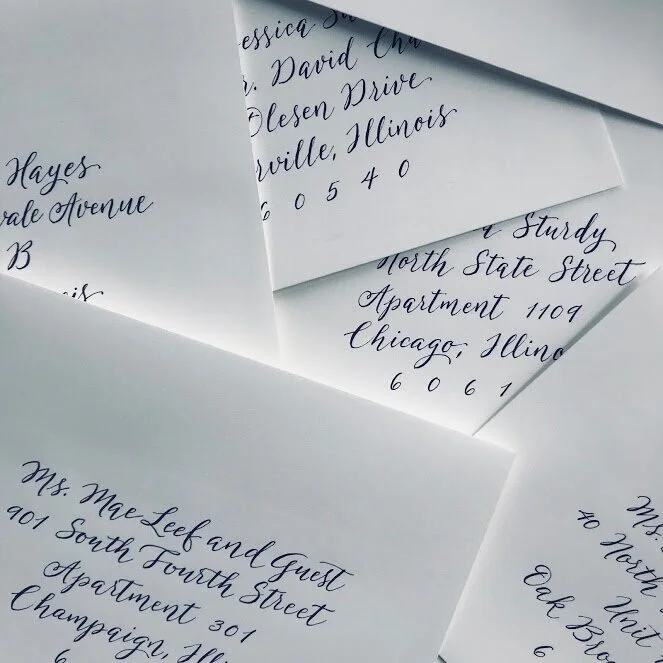 essica Su
r. David Cha
Olesen Drive
rville, Illinois
6 0 5 4 0
Hayes
vale Avenue
B
is
Sturdy
North State Street
Apartment 1109
Chicago, Illino
6 0 6 1
Ms. Mae Leef and Guest
901 South Fourth Street
Apartment 301
Champaign, Illi
6
Ms.
40 North
Unit
Oak Bro
6